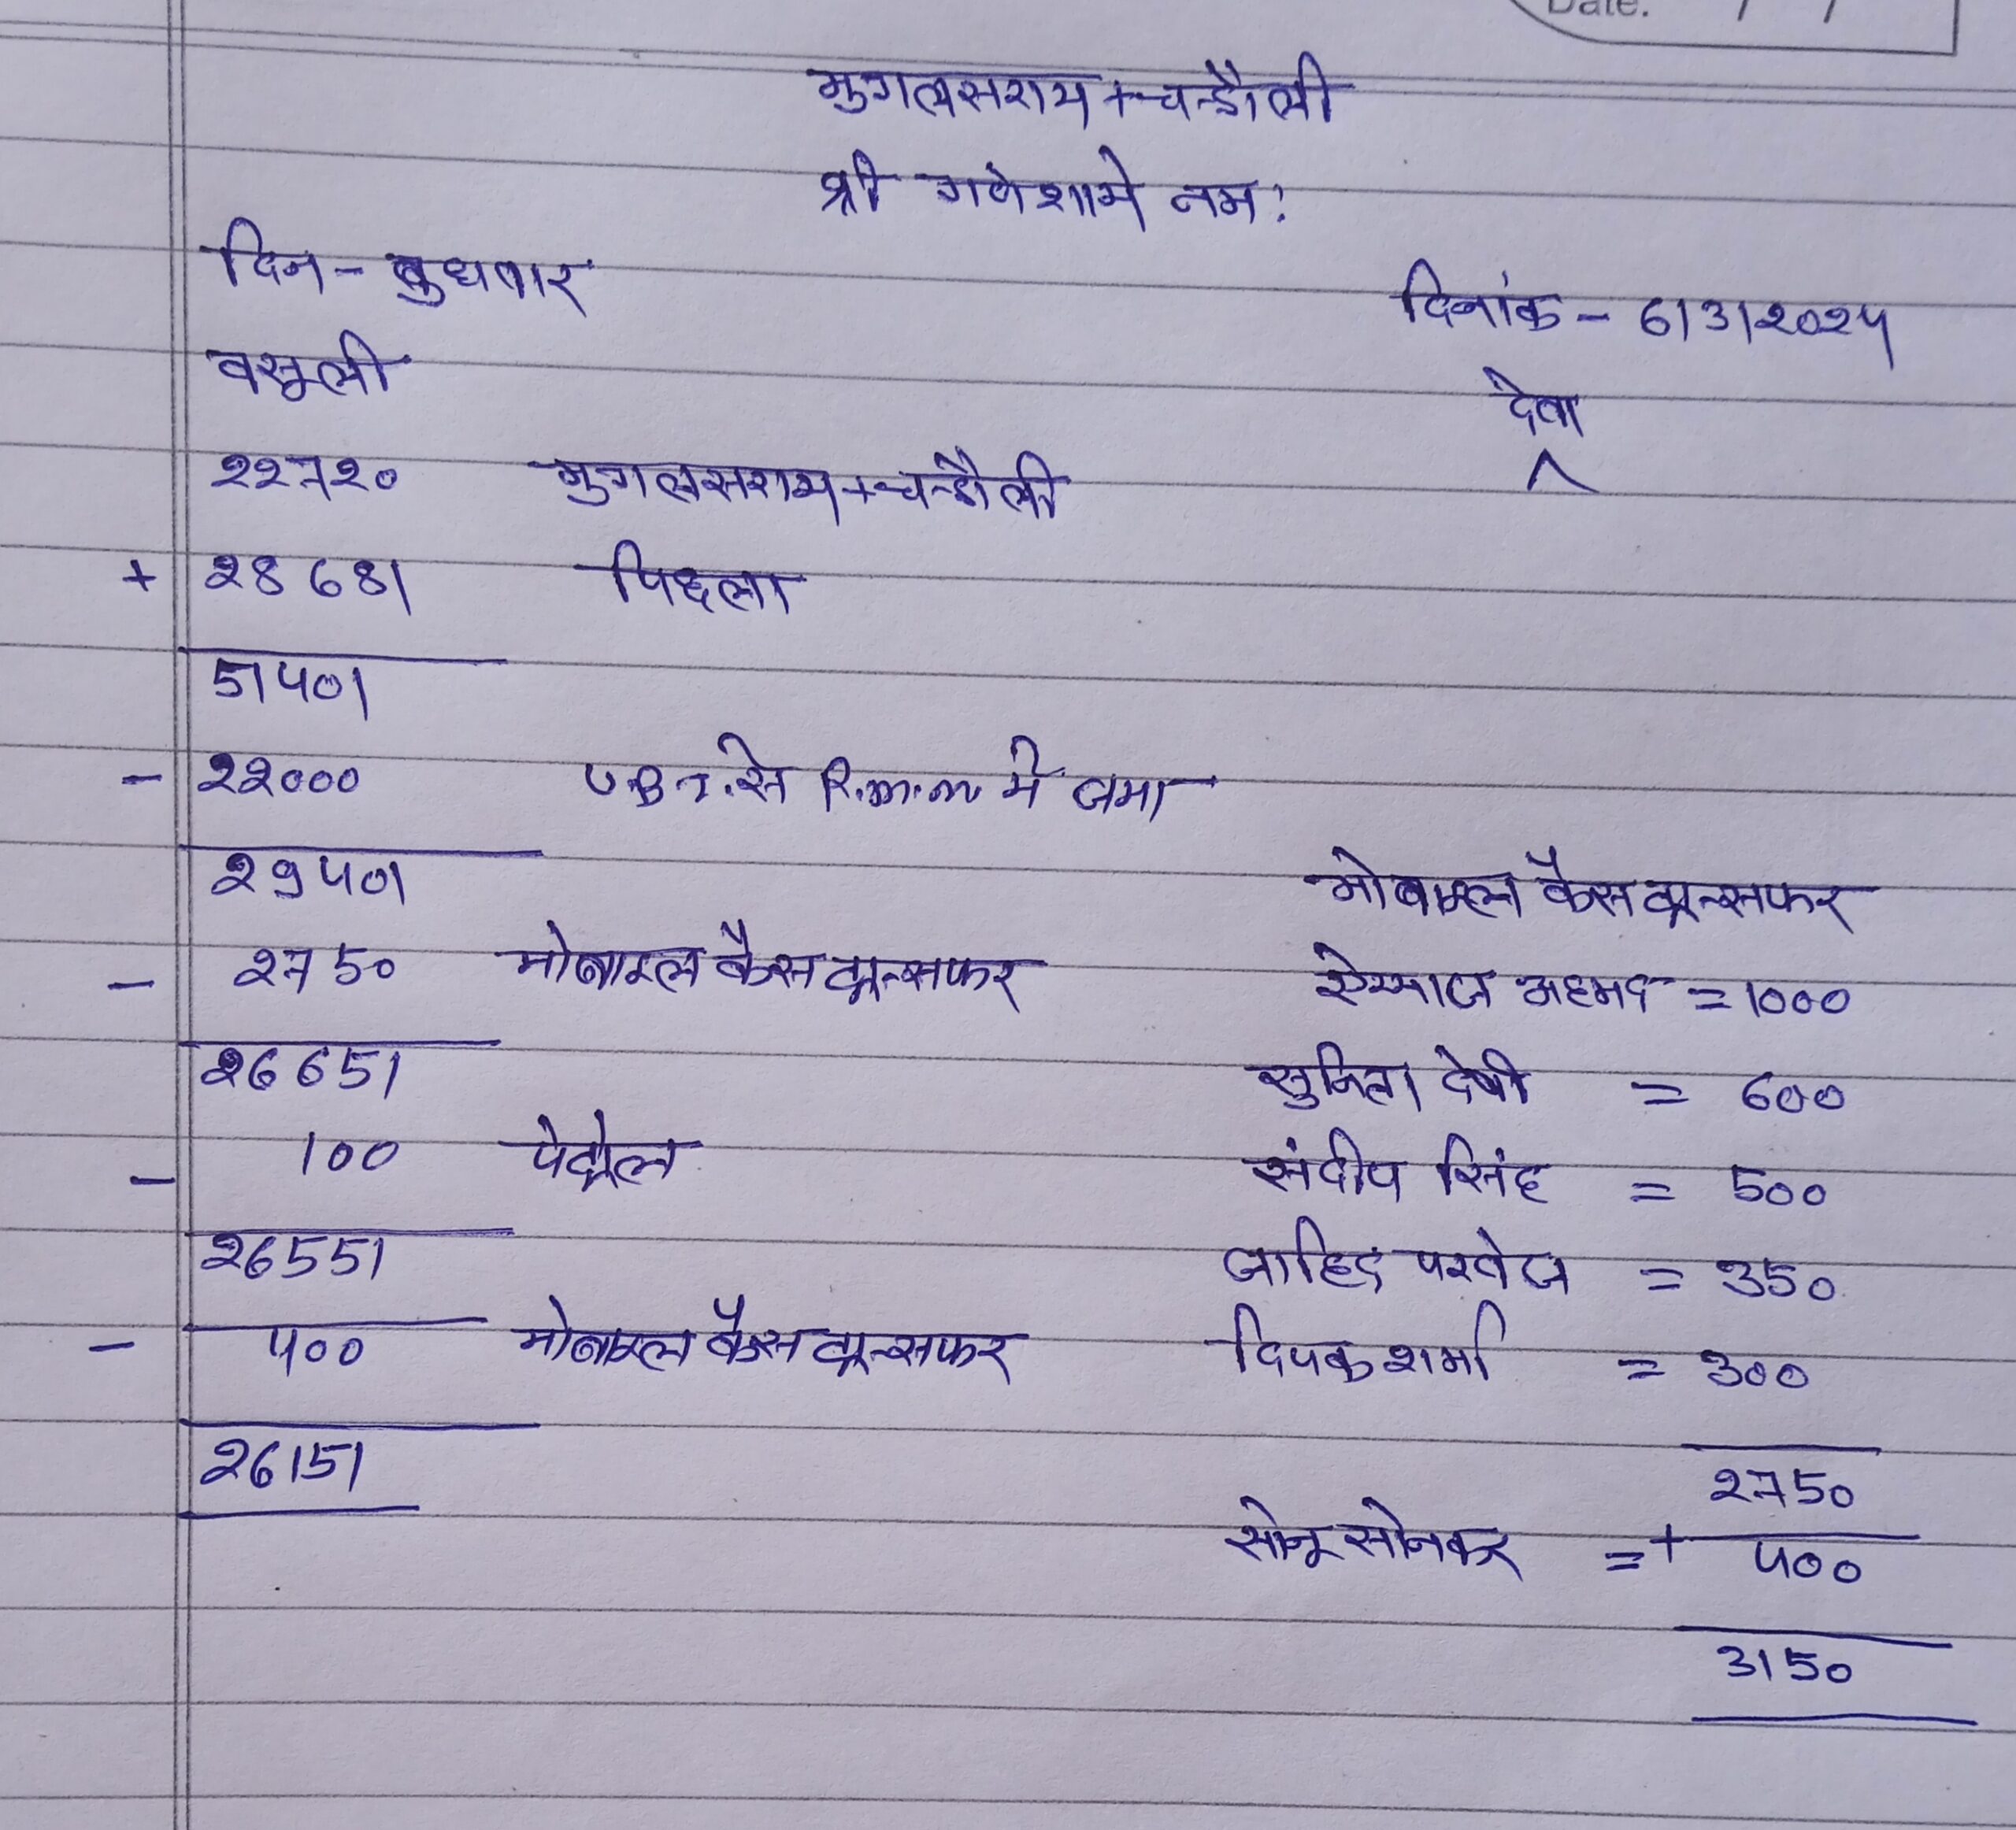 Date. / /
मुगलसराय + चन्डौली
श्री गणेशाये नमः
दिन - बुधवार
दिनांक - 6/3/2024
वसूली
देवा
22720 मुगलसराय + चन्डौली
+ 28681 पिछला
51401
- 22000 U.B.I. से R.m.m में जमा
29401
मोबाइल कैस ट्रान्सफर
- 2750 मोबाइल कैस ट्रान्सफर
अहमद = 1000
26651
सुनिता देवी = 600
- 100 पेट्रोल
संदीप सिंह = 500
26551
जाहिद परवेज = 350
- 400 मोबाइल कैस ट्रान्सफर
दिपक शर्मा = 300
26151
2750
सोनू सोनकर = + 400
3150